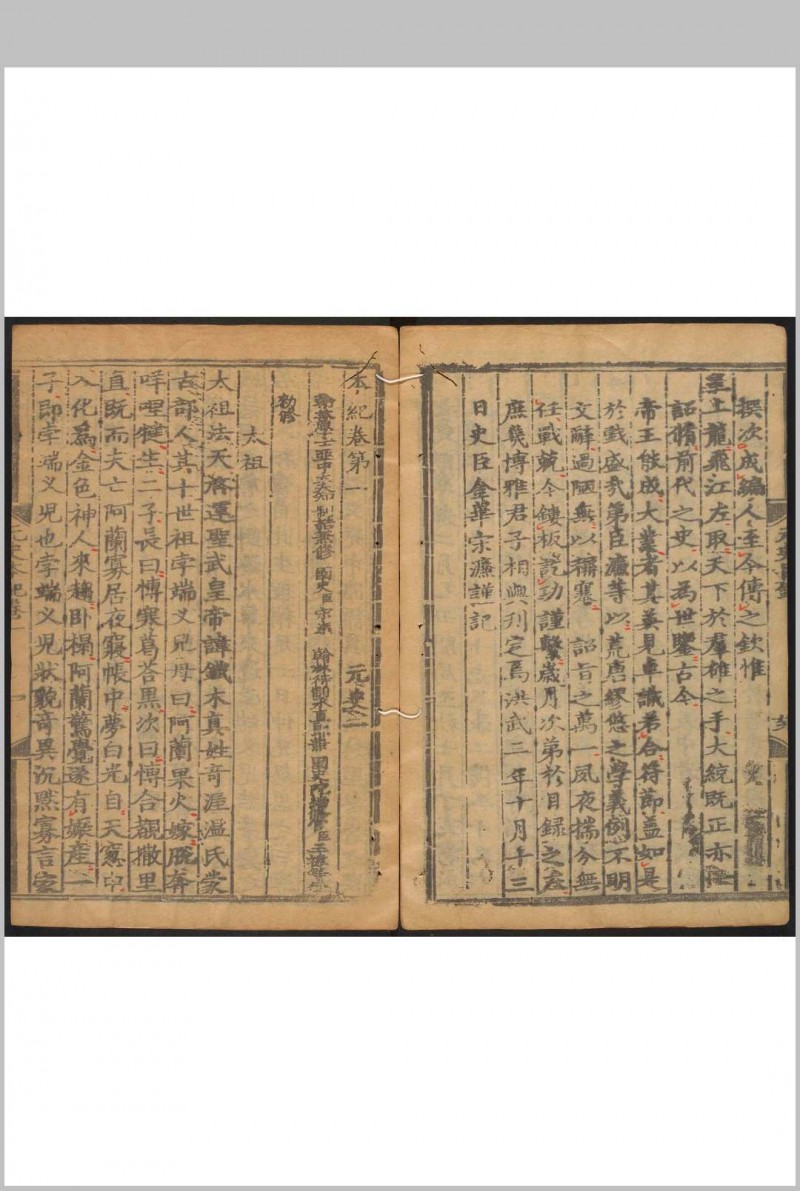 撰次成編人至今傳之欽惟
皇上龍飛江左取天下於羣雄之手大統既正亦
詔脩前代之史以為世鑒古今
帝王能成大業者其英見卓識若合符節蓋如是
於戲盛哉第臣濂等以荒唐繆悠之學義例不明
文辭過陋無以稱塞 詔旨之萬一夙夜揣分無
任戰兢今鏤板訖功謹繫歲月次第於目録之左
庶幾博雅君子相與刊定焉洪武二年十月十三
日史臣金華宋濂謹記
本紀卷第一 元史一
勑修
太祖
太祖法天啓運聖武皇帝諱鐵木真姓奇渥溫氏蒙
古部人其十世祖孛端义兒母曰阿蘭果火嫁脫奔
咩哩犍生二子長曰博寒葛荅黑次曰博合覩撒里
直既而夫亡阿蘭寡居夜寢帳中夢白光自天窓中
入化為金色神人來趨卧榻阿蘭驚覺遂有娠產一
子即孛端义兒也孛端义兒狀貌奇異沉黙寡言家
元史本紀卷一 一